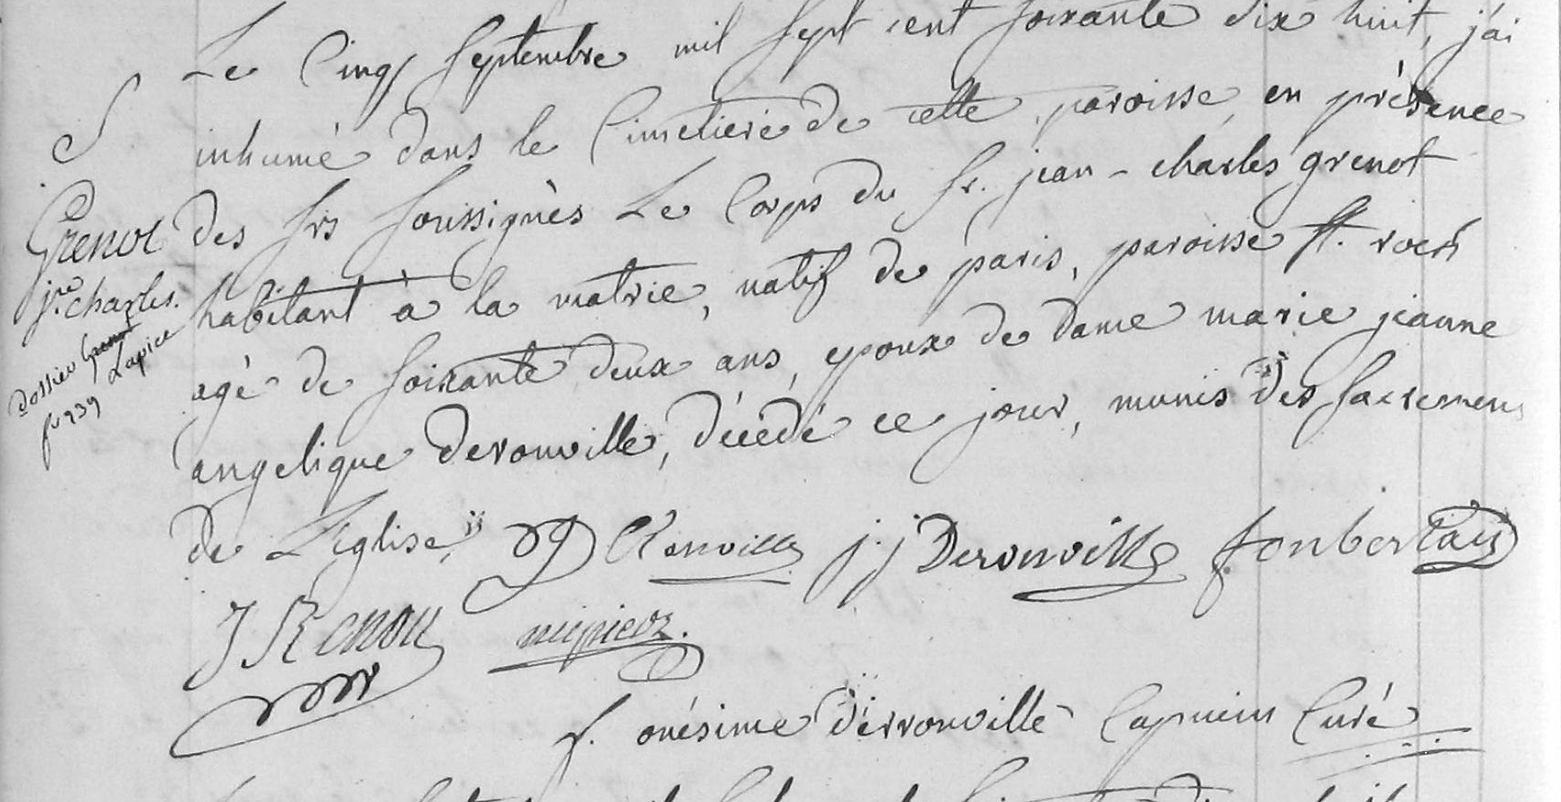 Le Cinq Septembre mil Sept cent soixante dix huit, j'ai
inhumé dans le Cimetiere de cette paroisse, en présence
des srs soussignès Le Corps du sr. jean-charles grenot
habitant à la matrie, natif de paris, paroisse st. roch
agé de soixante deux ans, epoux de dame marie jeanne
angelique derouville, décédé ce jour, munis des sacremens
de L'église,
S
Grenot
charles.
dossier
Lapice
j. j Derouville
J Renou
f. onésime d'erouville Capucin Curé